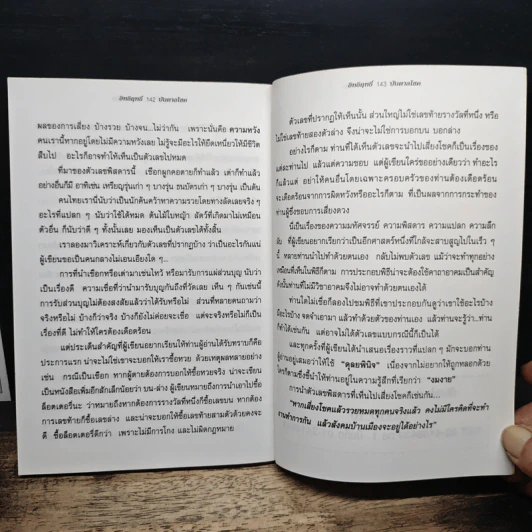 อิทธิฤทธิ์ 142 บันดาลโชค
ผลของการเสี่ยง บ้างรวย บ้างจน...ไม่ว่ากัน เพราะนั่นคือ ความหวัง
คนเรานี้หากอยู่โดยไม่มีความหวังเลย ไม่รู้จะมีอะไรให้ยึดเหนี่ยวให้มีชีวิต
สืบไป อะไรก็อาจทำให้เห็นเป็นตัวเลขไปหมด
ที่มาของตัวเลขพิสดารนี้ เชือกผูกคอตายก็ทำแล้ว เต่าก็ทำแล้ว
อย่างอื่นก็มี อาทิเช่น เหรียญรุ่นเก่า ๆ บางรุ่น ธนบัตรเก่า ๆ บางรุ่น เป็นต้น
คนไทยเรานี้นับว่าเป็นนักค้นคว้าหาความรวยโดยทางลัดเลยจริง ๆ
อะไรที่แปลก ๆ นับว่าใช้ได้หมด ต้นไม้ใบหญ้า สัตว์ที่เกิดมาไม่เหมือน
ตัวอื่น ก็นับว่าดี ๆ ทั้งนั้นเลย มองเห็นเป็นตัวเลขได้ทั้งสิ้น
เราลองมาวิเคราะห์เกี่ยวกับตัวเลขที่ปรากฏบ้าง ว่าเป็นอะไรกันแน่
ผู้เขียนขอเป็นคนกลางไม่เอนเอียงใด ๆ...
การที่นำเชือกหรือเต่ามาเซ่นไหว้ หรือมารับการแผ่ส่วนบุญ นับว่า
เป็นเรื่องดี ความเชื่อที่ว่านำมารับบุญกันถึงที่วัดเลย เห็น ๆ กันเช่นนี้
การรับส่วนบุญไม่ต้องสงสัยแล้วว่าได้รับหรือไม่ ส่วนที่หลายคนถามว่า
จริงหรือไม่ บ้างก็ว่าจริง บ้างก็ยังไม่ค่อยจะเชื่อ แต่จะจริงหรือไม่ก็เป็น
เรื่องที่ดี ไม่ทำให้ใครต้องเดือดร้อน
แต่ประเด็นสำคัญที่ผู้เขียนอยากให้ท่านผู้อ่านได้รับทราบก็คือ
ประการแรก น่าจะไม่ใช่เขาจะบอกให้เราซื้อหวย ด้วยเหตุผลหลายอย่าง
เช่น กรณีเป็นเชือก หากผู้ตายต้องการบอกให้หวยจริง น่าจะเขียน
เป็นหนังสือเพิ่มอีกสักเล็กน้อยว่า บน-ล่าง ผู้เขียนหมายถึงการนำเอาไปซื้อ
ล็อตเตอรี่นะ ว่าหมายถึงหากต้องการรางวัลที่หนึ่งก็ซื้อเลขบน หากต้อง
การเลขท้ายก็ซื้อเลขล่าง และน่าจะบอกให้ซื้อเลขท้ายสามตัวด้วยคงจะ
ดี ซื้อล็อตเตอรี่ดีกว่า เพราะไม่มีการโกง และไม่ผิดกฎหมาย
อิทธิฤทธิ์ 143 บันดาลโชค
ตัวเลขที่ปรากฏให้เห็นนั้น ส่วนใหญ่ไม่ใช่เลขท้ายรางวัลที่หนึ่ง หรือ
ไม่ใช่เลขท้ายสองตัวล่าง จึงน่าจะไม่ใช่การบอกบน บอกล่าง
อย่างไรก็ตาม ท่านที่ได้เห็นตัวเลขจะนำไปเสี่ยงโชคก็เป็นเรื่องของ
แต่ละท่านไป แล้วแต่ความชอบ แต่ผู้เขียนใคร่ขออย่างเดียวว่า ทำอะไร
ก็แล้วแต่ อย่าให้คนอื่นโดยเฉพาะครอบครัวของท่านต้องเดือดร้อน
จะเดือดร้อนจากการผิดหวังหรืออะไรก็ตาม ที่เป็นผลจากการกระทำของ
ท่านผู้ซึ่งชอบการเสี่ยงดวง
นี่เป็นเรื่องของความมหัศจรรย์ ความพิสดาร ความแปลก ความลึก
ลับ ที่ผู้เขียนอยากเรียกว่าเป็นอีกศาสตร์หนึ่งที่ใกล้จะสาบสูญไปในเร็ว ๆ
นี้ หลายท่านนำไปทำด้วยตนเอง กลับไม่พบตัวเลข แม้ว่าจะทำทุกอย่าง
เหมือนที่เห็นในพิธีก็ตาม การประกอบพิธีน่าจะต้องใช้คาถาอาคมเป็นสำคัญ
ดังนั้นท่านที่ไม่มีวิชาอาคมจึงไม่อาจทำด้วยตนเองได้
ท่านใดไม่เชื่อก็ลองไปชมพิธีที่เขาประกอบกันดูว่าเขาใช้อะไรบ้าง
มีอะไรบ้าง จดจำเอามา แล้วทำด้วยตัวของท่านเอง แล้วท่านจะรู้ว่า...ท่าน
ก็ทำได้เช่นกัน แต่อาจไม่ได้ตัวเลขแบบกรณีนี้ก็เป็นได้
และทุกครั้งที่ผู้เขียนได้นำเสนอเรื่องราวที่แปลก ๆ มักจะบอกท่าน
ผู้อ่านอยู่เสมอว่าให้ใช้ "ดุลยพินิจ" เนื่องจากไม่อยากให้ถูกหลอกด้วย
ใครก็ตามซึ่งชี้นำให้ท่านอยู่ในความรู้สึกที่เรียกว่า "งมงาย"
การนำตัวเลขพิสดารที่เห็นไปเสี่ยงโชคก็เช่นกัน...
"หากเสี่ยงโชคแล้วรวยหมดทุกคนจริงแล้ว คงไม่มีใครคิดที่จะทำ
งานทำการกัน แล้วสังคมบ้านเมืองจะอยู่ได้อย่างไร"